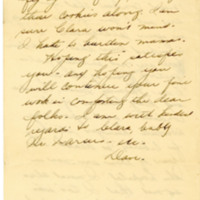 their cookies along I am
sure Clara won't mind.
I hate to burden mama.
Hoping this
you - and hoping you
will continue your fine
work in comforting the dear
folks. I am with kindest
regards to Clara baby

Dean.